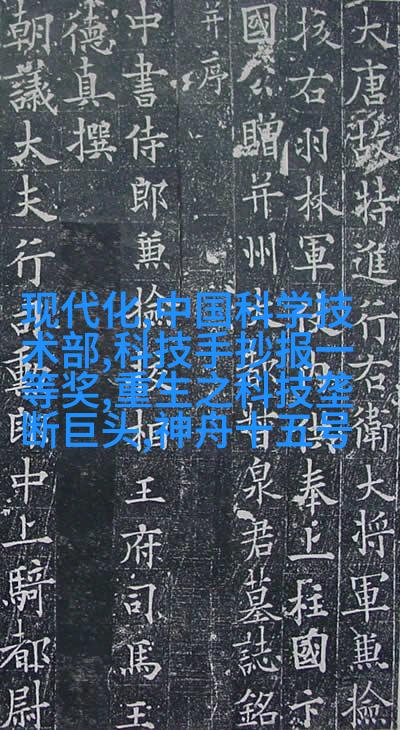 大唐故特進行右衛大將軍兼檢
校右羽林軍供奉上柱國卞
國公贈并州泉君墓誌銘
并序
中書侍郎兼檢校相王府司馬王
德真撰
朝議大夫行勳郎中上騎都尉
现代化,中国科学技
术部,科技手抄报一
等奖,重生之科技垄
断巨头,神舟十五号